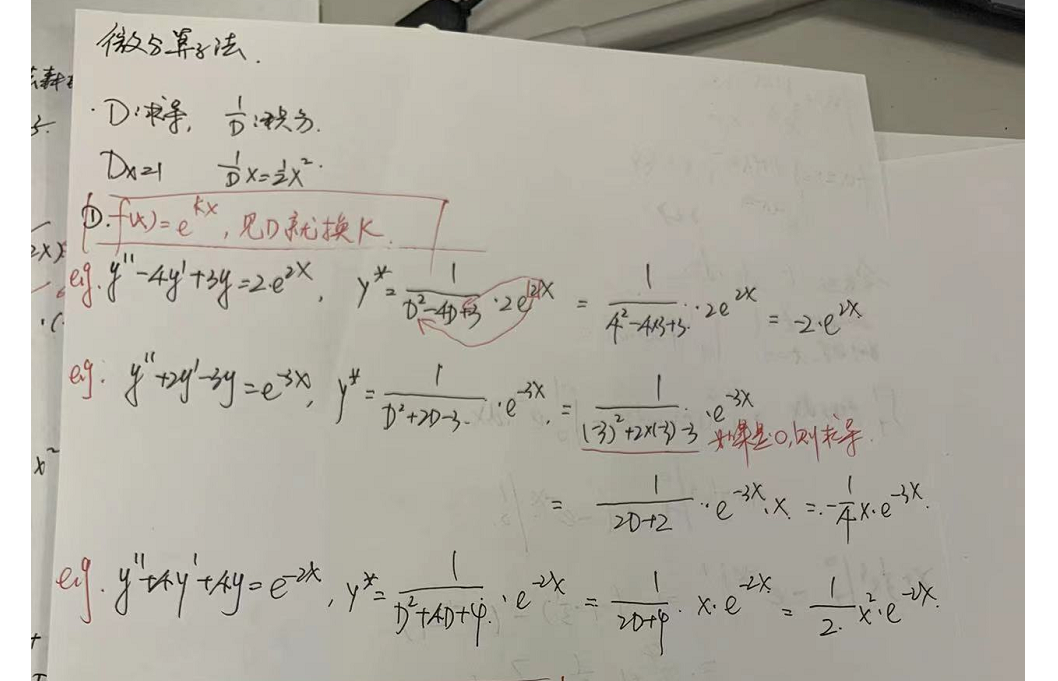 微分算子法.
·D:求导, 1/D:积分.
Dx=1 1/D x=1/2 x².
①.f(x)=e^{kx}, 见D就换K.
eg. y''-4y'+3y=2·e^{2x}, y*=1/(D²-4D+3)·2e^{2x} = 1/(4²-4×3+3)·2e^{2x} = -2·e^{2x}
eg: y''+2y'-3y=e^{-3x}, y*=1/(D²+2D-3)·e^{-3x}. = 1/((-3)²+2×(-3)-3)·e^{-3x} 如果是0,则求导.
= 1/(2D+2)·e^{-3x}·x. =-1/4 x·e^{-3x}.
eg. y''+4y'+4y=e^{-2x}, y*=1/(D²+4D+4)·e^{-2x} = 1/(2D+4)·x·e^{-2x} = 1/2·x²·e^{-2x}.